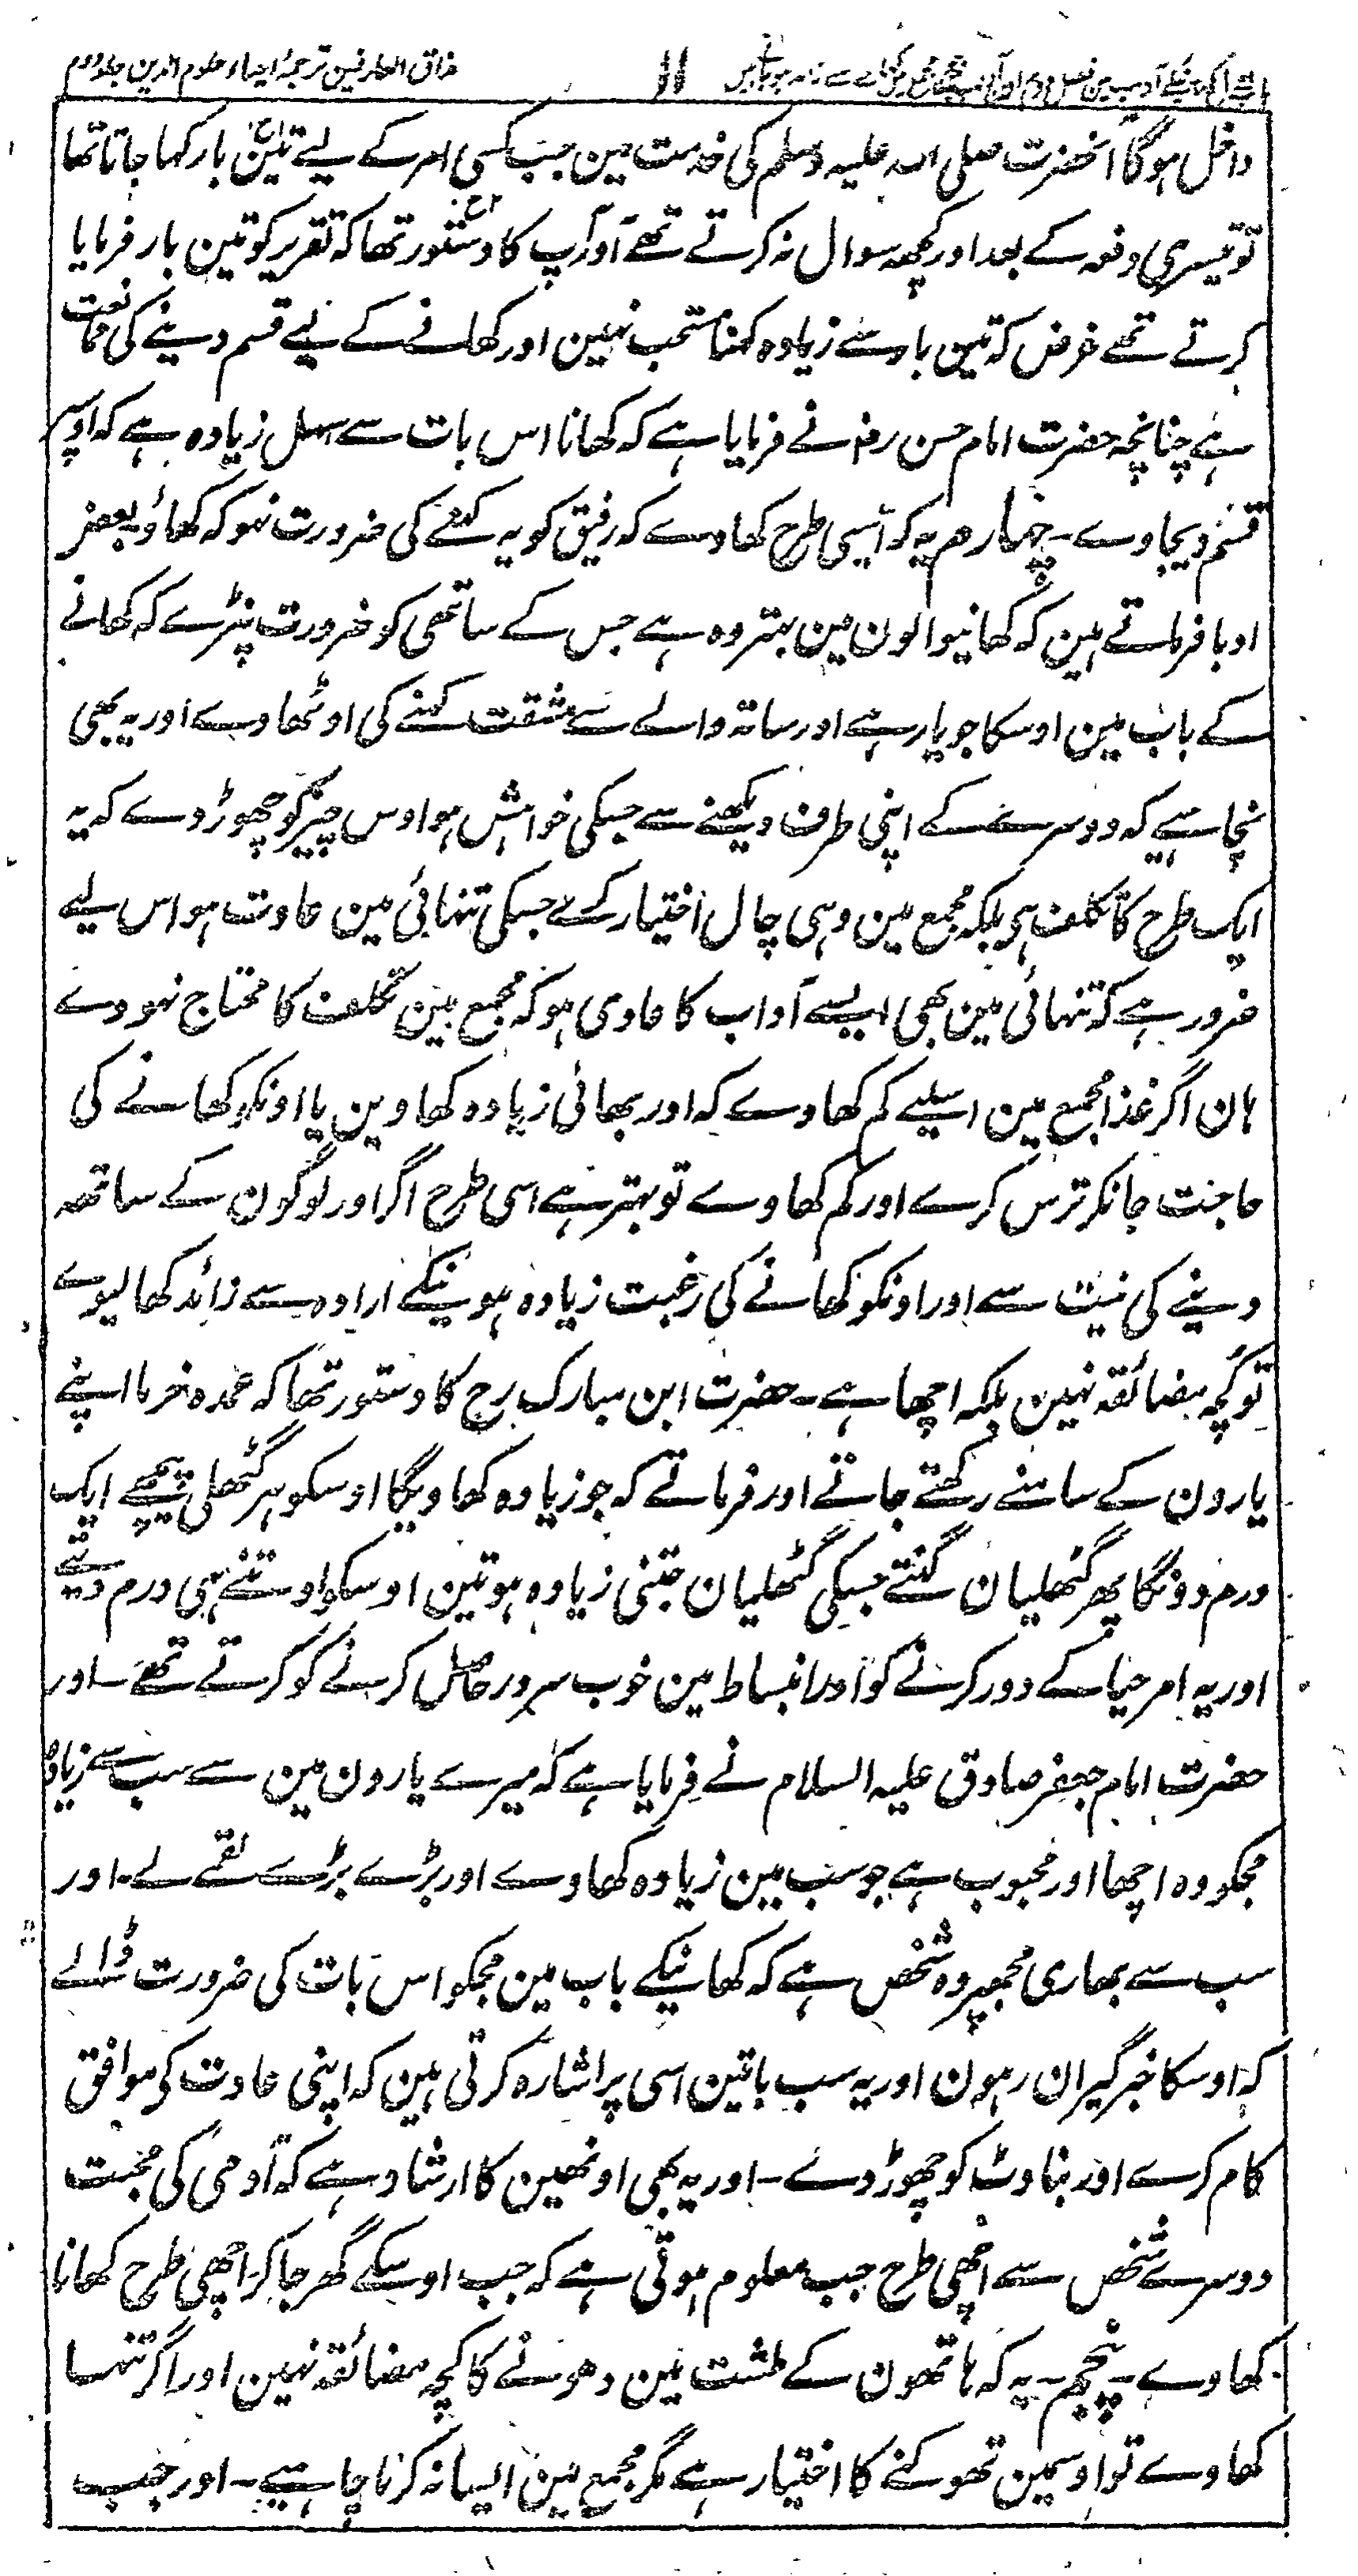 مذاق العارفین ترجمۂ احیاء علوم الدین جلد دوم
۱۱
داخل ہوگا آنحضرت صلی اللہ علیہ وسلم کی خدمت مین جب کسی امر کے لیے تین بار کہا جاتا تھا
تو تیسری دفعہ کے بعد اور کچھہ سوال نہ کرتے تھے اور آپ کا دستور تھا کہ تقریر کو تین بار فرمایا
کرتے تھے غرض کہ تین بار سے زیادہ کہنا مستحب نہین اور کھانے کے لیے قسم دینے کی ممانعت
ہے چنانچہ حضرت امام حسن رضہ نے فرمایا ہے کہ کھانا اس بات سے سہل زیادہ ہے کہ اوسپر
قسم دیجاوے ۔ چہارم یہ کہ ایسی طرح کھاوے کہ رفیق کو یہ کہنے کی ضرورت نہو کہ کھاؤ بعض
ادبا فرماتے ہین کہ کھانیوالون مین بہتر وہ ہے جس کے ساتھی کو ضرورت نپڑے کہ کھانے
کے باب مین اوسکا جویا رہے اور ساتہ والے سے مشقت کہنے کی اوٹھاوے اور یہ بھی
نچاہیے کہ دوسرے کے اپنی طرف دیکھنے سے جسکی خواہش ہو اوس چیز کو چھوڑ دے کہ یہ
ایک طرح کا تکلف ہی بلکہ مجمع مین وہی چال اختیار کرے جسکی تنہائی مین عادت ہو اس لیے
ضرور ہے کہ تنہائی مین بھی ایسے آداب کا عادی ہو کہ مجمع مین تکلف کا محتاج نہووے
ہان اگر غذا مجمع مین اسلیے کم کھاوے کہ اور بھائی زیادہ کھاوین یا اونکو کھانے کی
حاجت جانکر ترس کرے اور کم کھاوے تو بہتر ہے اسی طرح اگر اور لوگون کے ساتھہ
دینے کی نیت سے اور اونکو کھانے کی رغبت زیادہ ہونیکے ارادہ سے زائد کھا لیوے
تو کچہ مضائقہ نہین بلکہ اچھا ہے ۔ حضرت ابن مبارک رح کا دستور تھا کہ عمدہ خرما اپنے
یارون کے سامنے رکھتے جاتے اور فرماتے کہ جو زیادہ کھاویگا اوسکو ہر گٹھلی پیچھے ایک
درم دونگا پھر گٹھلیان گنتے جسکی گٹھلیان جتنی زیادہ ہوتین اوسکو اوتنے ہی درم دیتے
اور یہ امر حیا کے دور کرنے کو اور انبساط مین خوب سرور حاصل کرنے کو کرتے تھے ۔ اور
حضرت امام جعفر صادق علیہ السلام نے فرمایا ہے کہ میرے یارون مین سے سب سے زیادہ
مجکو وہ اچھا اور محبوب ہے جو سب مین زیادہ کھاوے اور بڑے بڑے لقمے لے ۔ اور
سب سے بھاری مجھپر وہ شخص ہے کہ کھانیکے باب مین مجکو اس بات کی ضرورت ڈالے
کہ اوسکا خبرگیران رہون اور یہ سب باتین اسی پر اشارہ کرتی ہین کہ اپنی عادت کی موافق
کام کرے اور بناوٹ کو چھوڑ دے ۔ اور یہ بھی اونھین کا ارشاد ہے کہ آدمی کی محبت
دوسرے شخص سے اچھی طرح جب معلوم ہوتی ہے کہ جب اوسکے گھر جاکر اچھی طرح کھانا
کھاوے ۔ پنجم ۔ یہ کہ ہاتھون کے طشت مین دھونے کا کچہ مضائقہ نہین اور اگر تنہا
کھاوے تو اوسمین تھوکنے کا اختیار ہے مگر مجمع مین ایسا نہ کرنا چاہیے ۔ اور جب